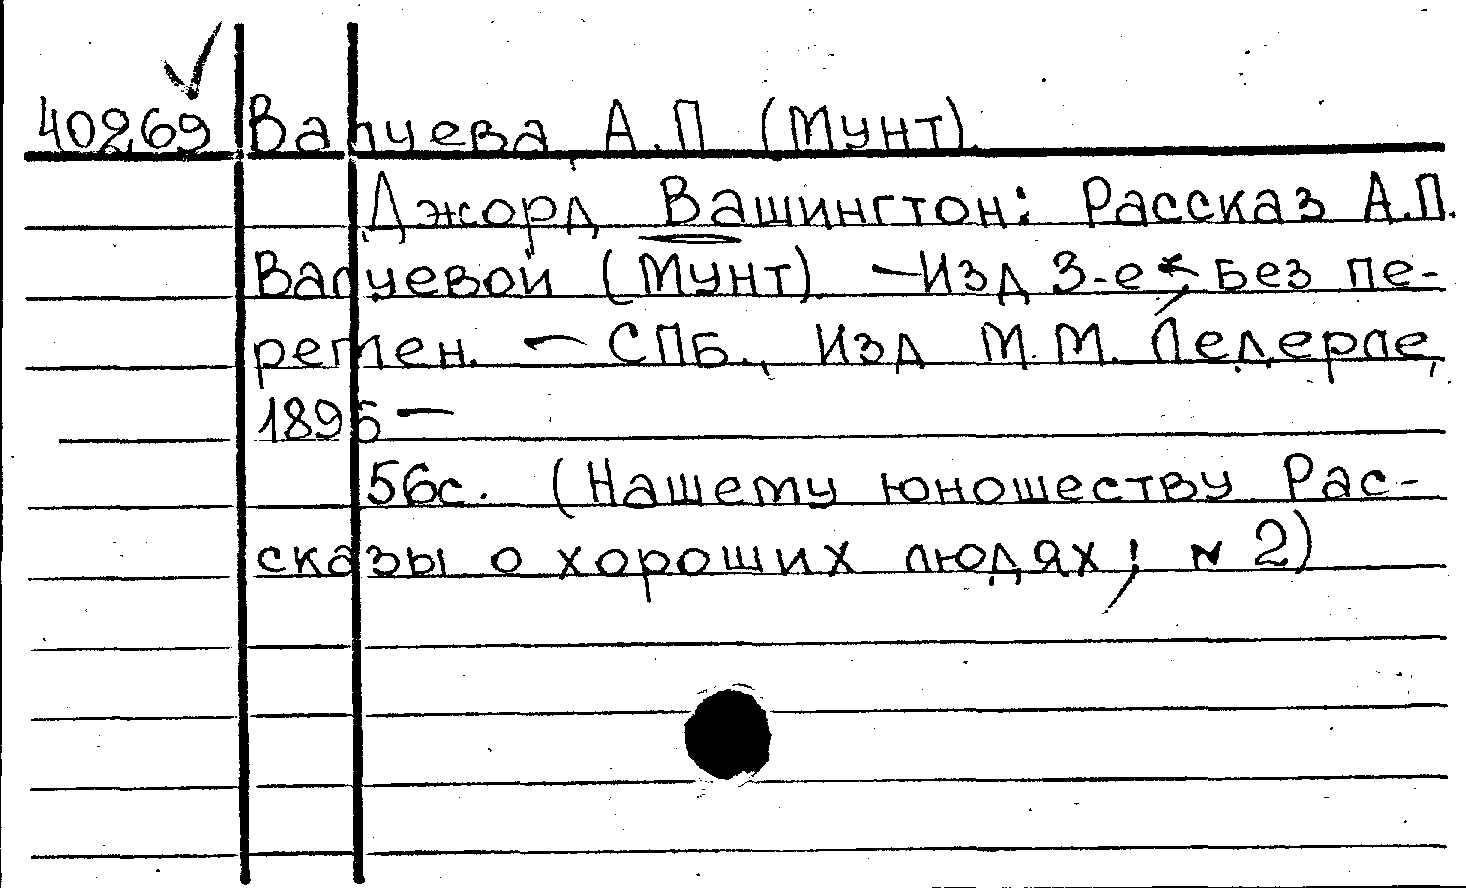 40269 Валуева А.П (Мунт)
Джорд Вашингтон: Рассказ А.П.
Валуевой (Мунт) —Изд 3-е, без пе-
ремен. — СПБ., Изд М.М. Ледерле,
1895 —
56с. (Нашему юношеству Рас-
сказы о хороших людях; N 2)